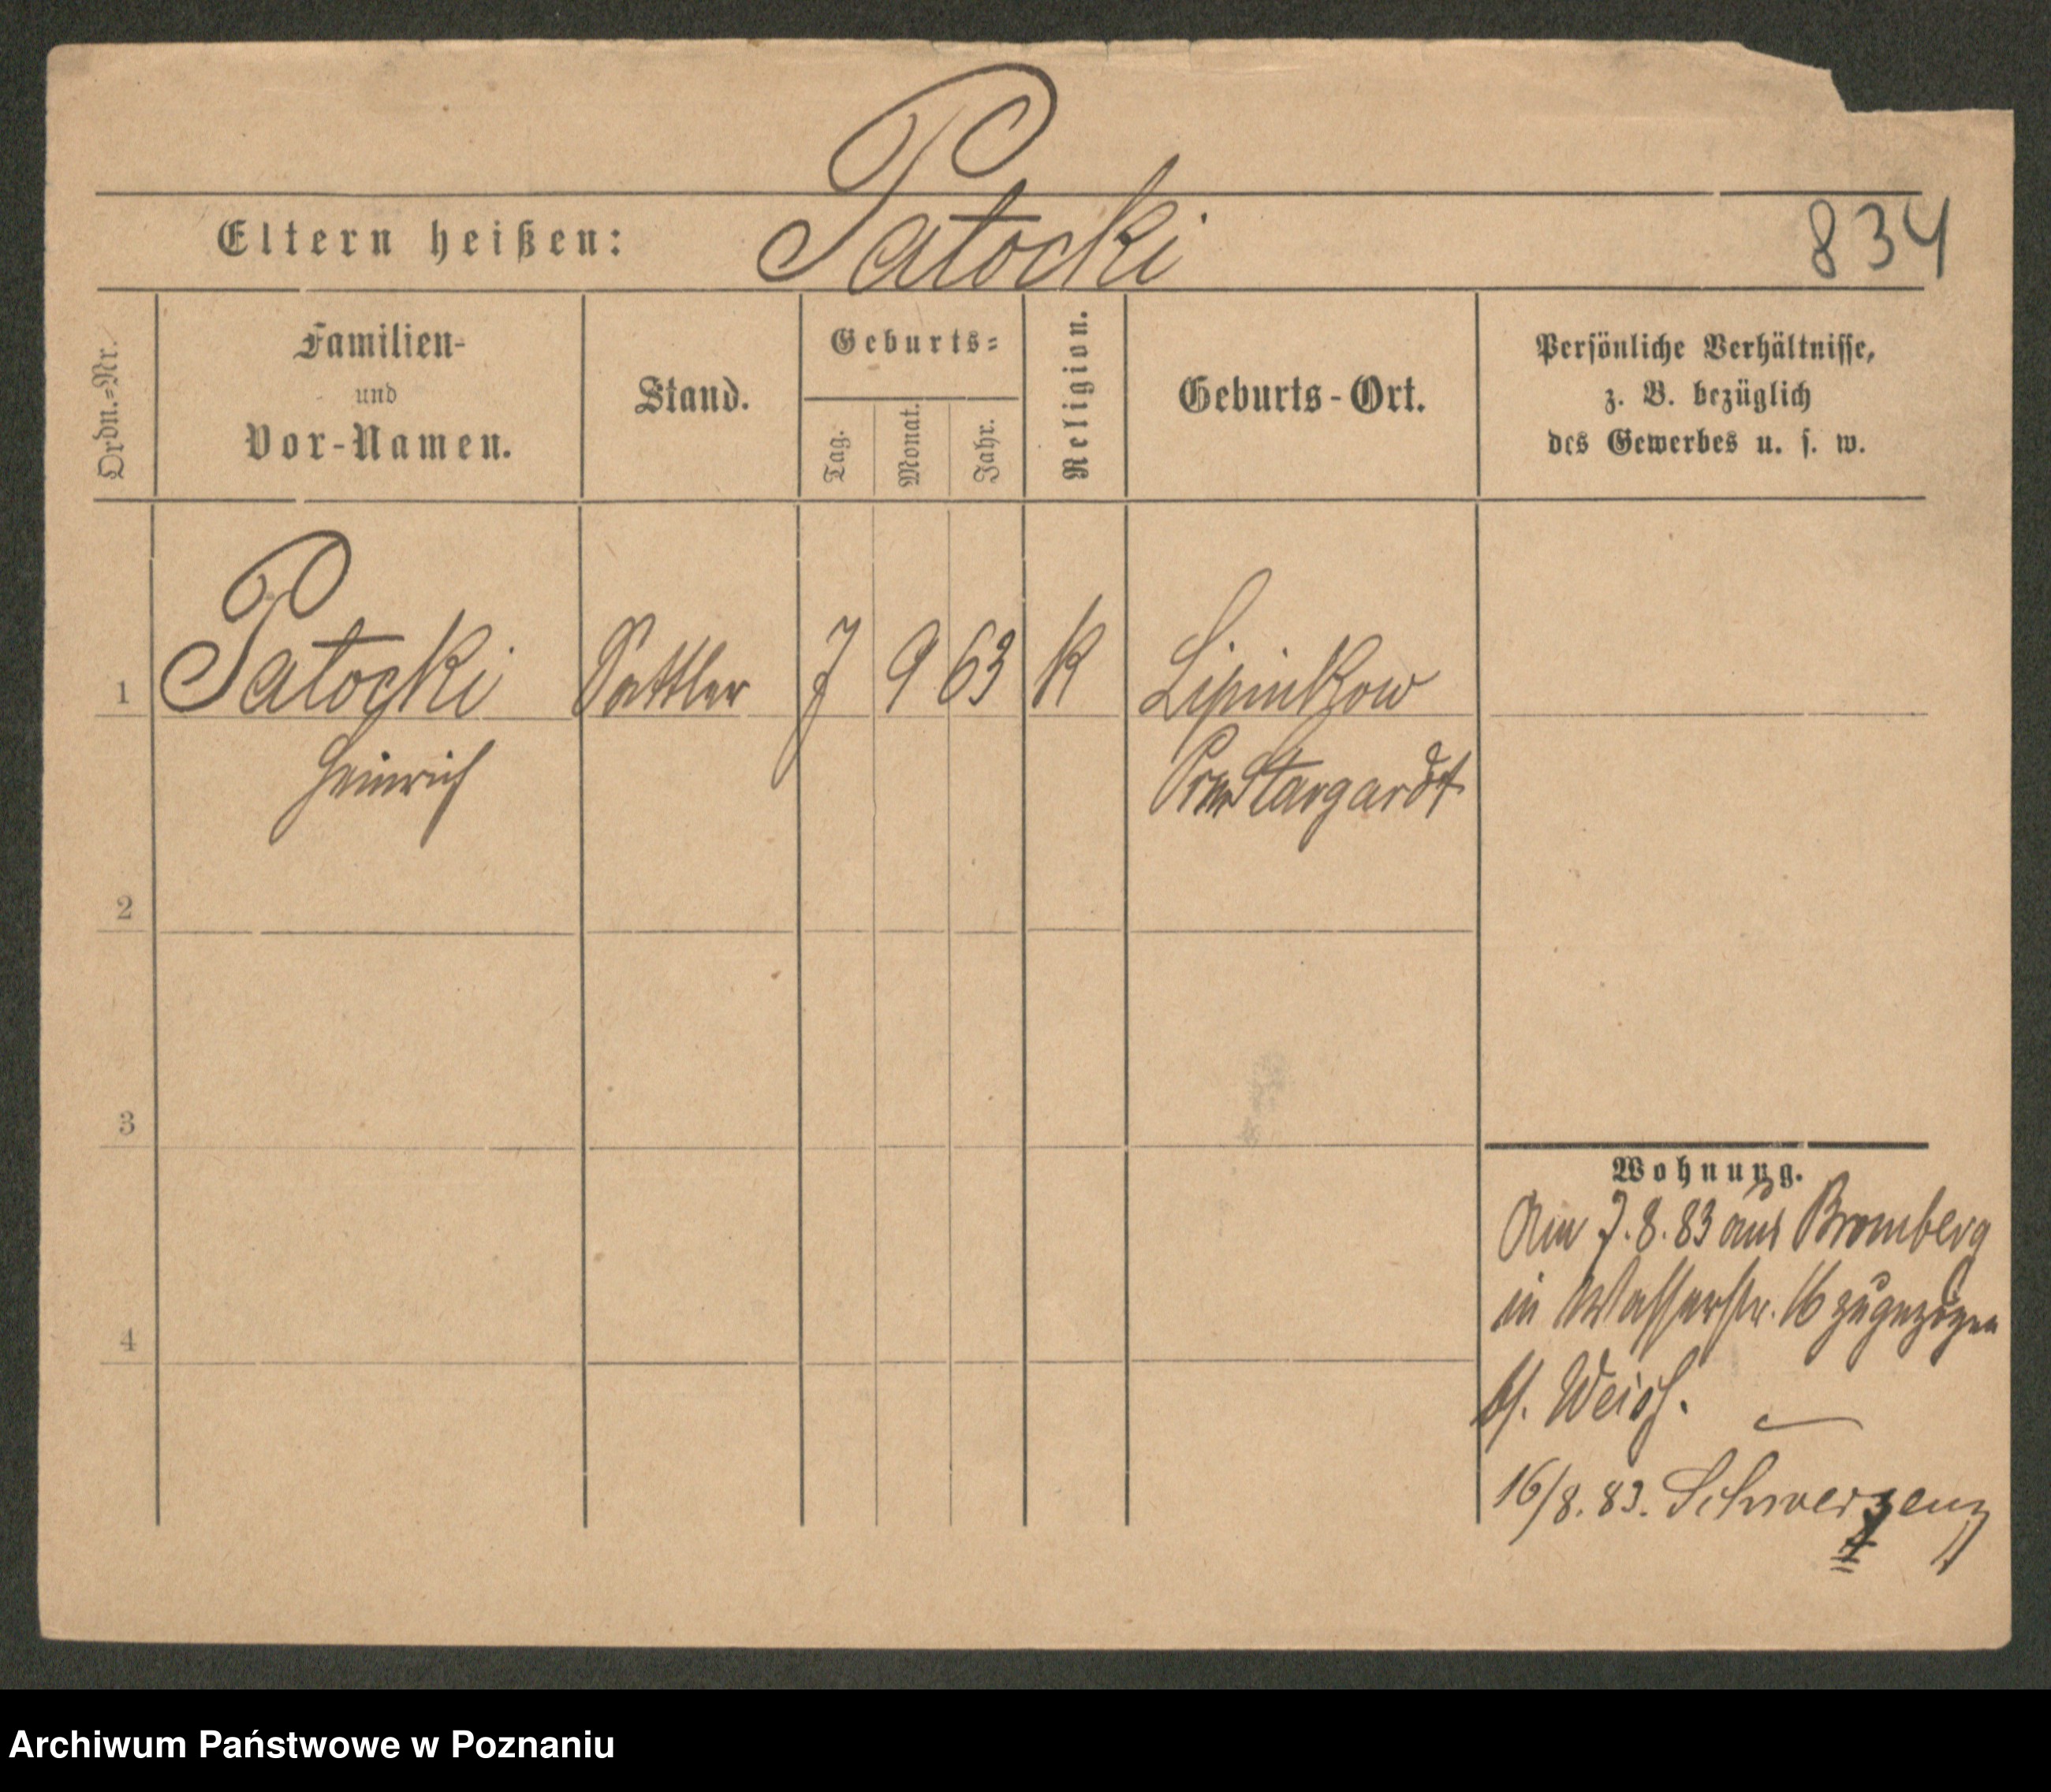 Patocki
Eltern heißen:
834
Ordn.=Nr.
Familien-
und
Vor-Namen.
Stand.
Geburts=
Tag.
Monat.
Jahr.
Religion.
Geburts-Ort.
Persönliche Verhältnisse,
z. B. bezüglich
des Gewerbes u. s. w.
1
Patocki
Sattler
7
9
63
K
Heinrich
Stargardt
2
3
4
Wohnung.
Am 7.8.83 aus Bromberg
in Wasserstr. 16 zugezogen
16/8.83. Schwersenz
Archiwum Państwowe w Poznaniu